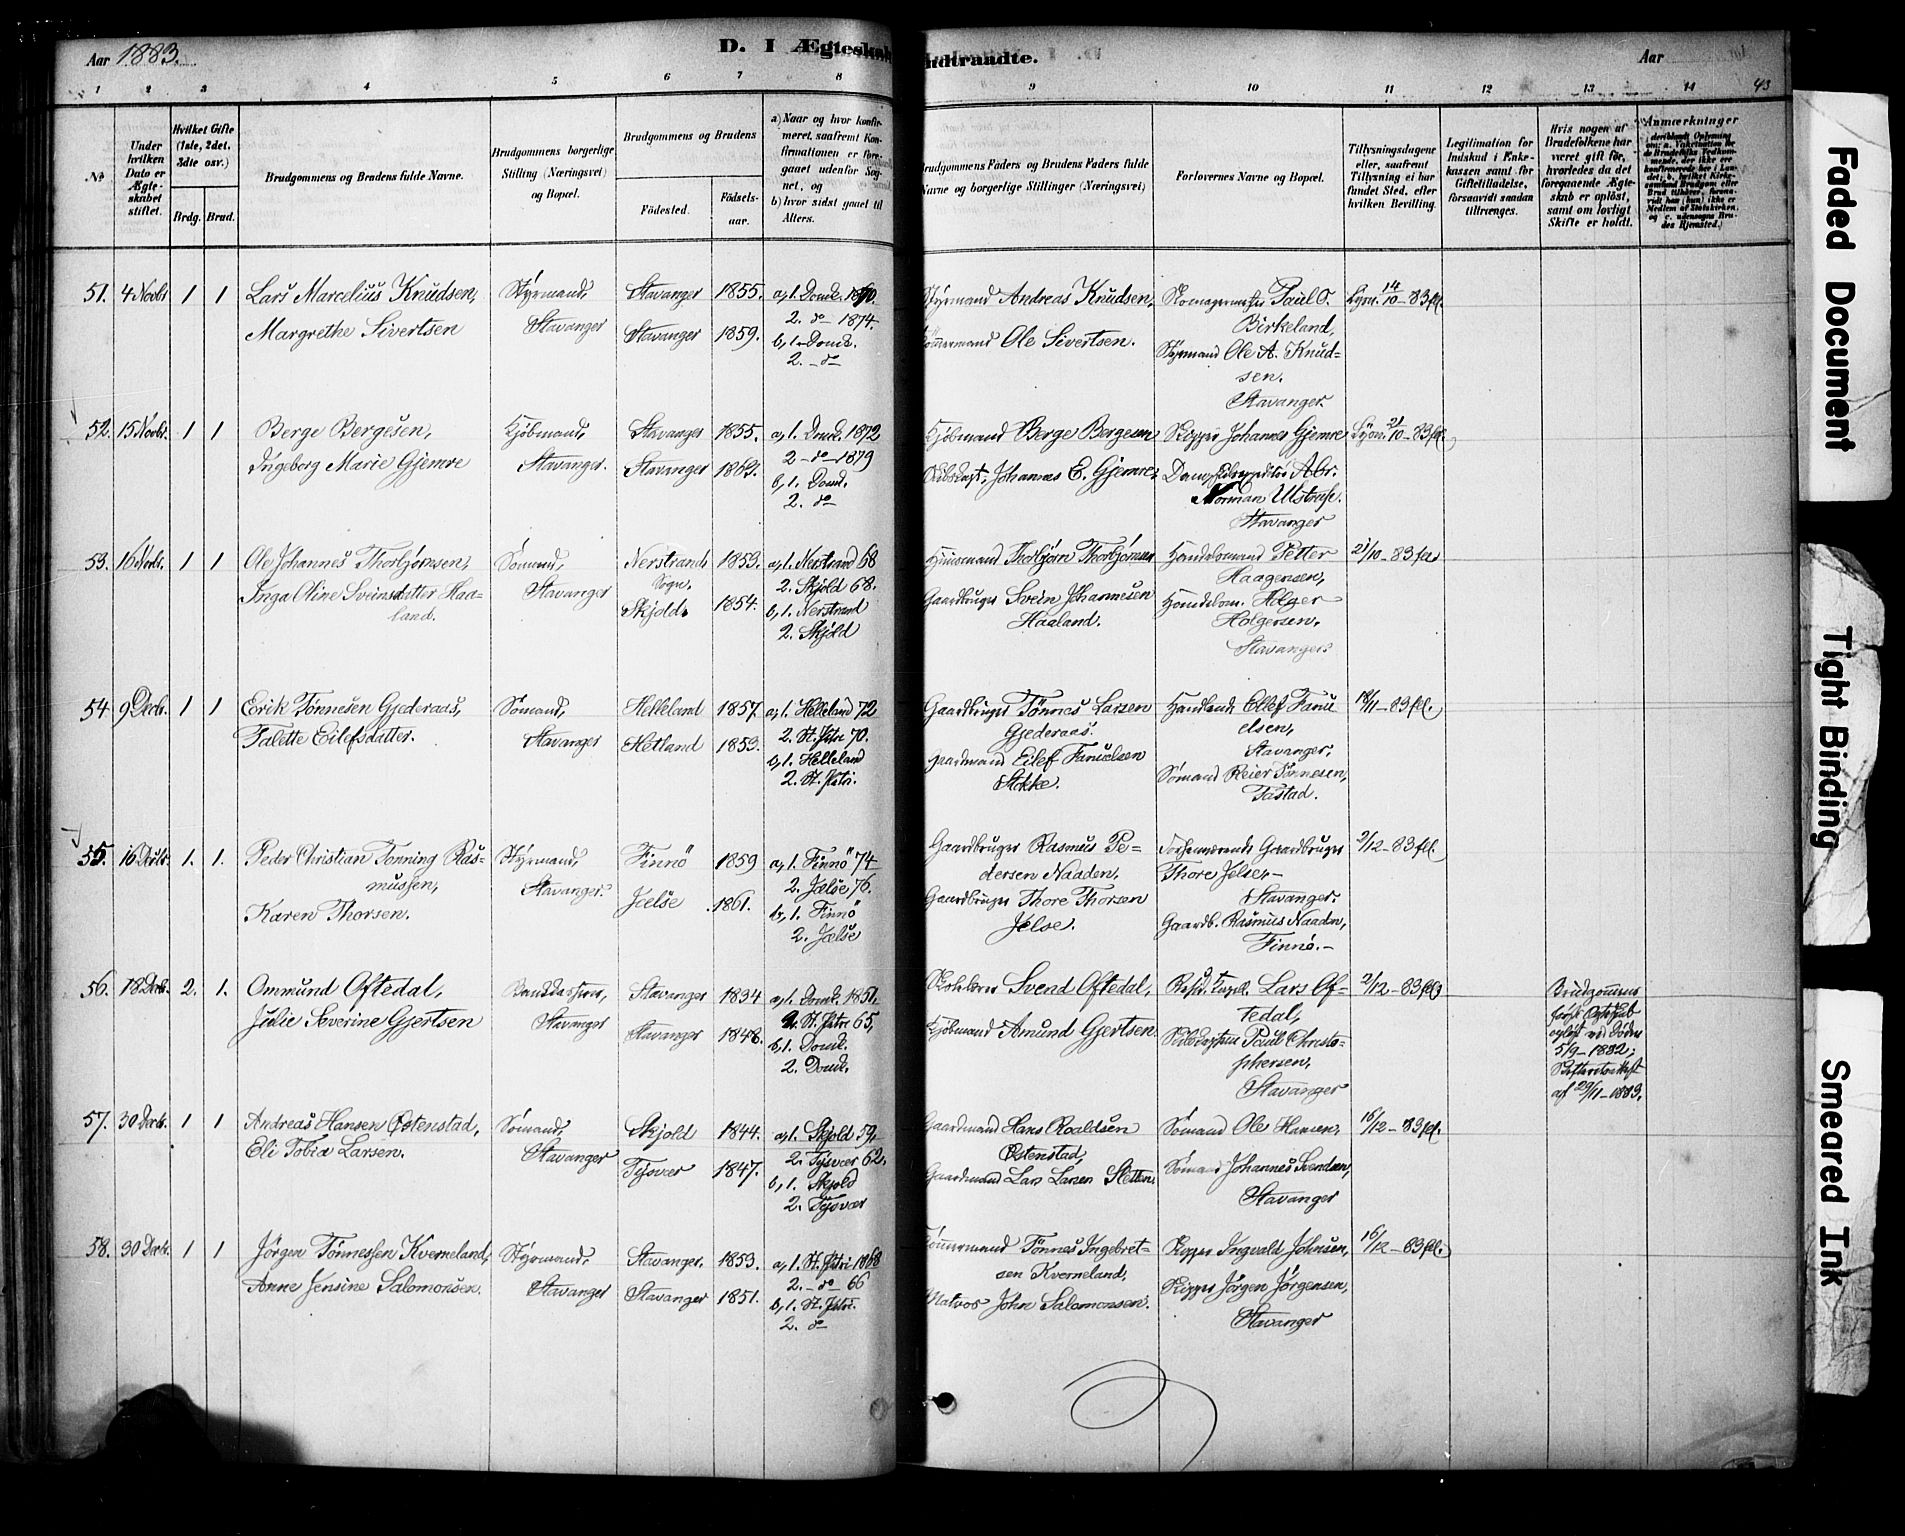 Aar 1883.
D. I Ægteskab
1 2 3 4 5 6 7 8
No
Under hvilken Dato er Ægteskabet stiftet.
Hvilket Gifte (1ste, 2det, 3die osv.)
Brdg. Brud.
Brudgommens og Brudens fulde Navne.
Brudgommens borgerlige Stilling (Næringsvei) og Bopæl.
Brudgommens og Brudens
Födested.
Födselsaar.
a) Naar og hvor konfirmeret, saafremt Konfirmationen er foregaaet udenfor Sognet, og
b) hvor sidst gaaet til Alters.
51. 4 Novbr. 1 1
Lars Marcelius Knudsen,
Margrethe Sivertsen
Styrmand,
Stavanger
Stavanger 1855.
Stavanger 1859.
a, 1. Domk. 1870.
2. do 1874.
b, 1. Domk.
2. do
52. 15 Novbr. 1 1
Berge Bergesen,
Ingeborg Marie Gjemre
Kjöbmand,
Stavanger.
Stavanger 1855.
Stavanger 1863.
a, 1. Domk. 1872
2 do 1879
b, 1. Domk.
2. do
53. 16 Novbr. 1 1
Ole Johannes Thorbjörnsen,
Inga Oline Sveinsdatter Haaland.
Sömand,
Stavanger
Nerstrand Sogn. 1853.
Skjold. 1854.
a, 1. Nerstrand 68
2. Skjold 68.
b, 1. Nerstrand
2. Skjold
54. 9 Decb. 1 1
Erik Tönnesen Gjederaas,
Talette Eilefsdatter.
Sömand,
Stavanger
Helleland 1857.
Hetland 1853.
a, 1. Helleland 72
2. St. Petri 70.
b, 1. Helleland
2. St. Petri.
55. 16 Decbr. 1. 1.
Peder Christian Tonning Rasmussen,
Karen Thorsen.
Styrmand,
Stavanger.
Finnö 1859
Jælse 1861.
a, 1. Finnö 74
2. Jælse 76.
b, 1. Finnö
2. Jælse
56. 18 Decb. 2. 1.
Ommund Oftedal,
Julie Severine Gjertsen
Stavanger
Stavanger 1834
Stavanger 1846.
a, 1. Domk. 1851.
2. St. Petri 65,
b, 1. Domk.
2. Domk.
57. 30 Decb. 1 1
Andreas Hansen Östenstad,
Eli Tobia Larsen.
Sömand,
Stavanger
Skjold 1844.
Tysvær 1847.
a, 1. Skjold 59,
2. Tysvær 62.
b, 1. Skjold
2. Tysvær
58. 30 Decb. 1 1
Jörgen Tönnessen Kverneland,
Anne Jensine Salomonsen.
Styrmand,
Stavanger
Stavanger. 1853.
Stavanger 1851.
a, 1. St. Petri 1868
2. do 66
b, 1. St. Petri.
2. do
indtraadte.
Aar
43
9 10 11 12 13 14
Brudgommens Faders og Brudens Faders fulde Navne og borgerlige Stillinger (Næringsvei)
Forlovernes Navne og Bopæl.
Tillysningsdagene eller, saafremt Tillysning ei har fundet Sted, efter hvilken Bevilling.
Legitimation for Indskud i Enkekassen samt for Giftetilladelse, forsaavidt saadan tiltrænges.
Hvis nogen af Brudefolkene har været gift før, hvorledes da det foregaaende Ægteskab er oplöst, samt om lovligt Skifte er holdt.
Anmærkninger
Styrmand Andreas Knudsen,
Tömmermand Ole Sivertsen.
Skomagermester Paul O.
Birkeland,
Styrmand Ole A. Knudsen.
Stavanger.
Lysn. 14/10-83 fl.
Kjöbmand Berge Bergesen
Skibskapt. Johannes E. Gjemre.
Skipper Johannes Gjemre
Dampskibsexpeditör Abr.
Norman
Stavanger
Lysn. 21/10-83 fl.
Huusmand Thorbjörn Thorbjörnsen
Gaardbruger Svein Johannesen
Haaland.
Handelsmand Petter
Haagensen,
Handelsm. Holger
Holgersen,
Stavanger.
21/10-83 fl.
Gaardbruger Tönnes Larsen
Gjederaas.
Gaardmand Eilef Fanuelsen
Stokke.
Handlende Ellef Fanuelsen,
Stavanger,
Sömand Reier Tönnesen,
Tastad.
18/11-83 fl.
Gaardbruger Rasmus Pedersen Naaden,
Gaardbruger Thore Thorsen
Jelse.
Forhenværende Gaardbruger
Thore Jelse,
Stavanger.
Gaardb. Rasmus Naaden,
Finnö.
2/12-83 fl.
Svend Oftedal,
Kjöbmand Amund Gjertsen
Resid. Capel. Lars Oftedal,
Paul Christophersen,
Stavanger
2/12-83 fl.
Brudgommens
förste Ægteskab
oplöst ved Döden
5/9-1882;
Skifteretsattest
af 29/11-1883.
Gaardmand Hans Roaldsen
Östenstad,
Gaardmand Lars Larsen Stetten.
Sömand Ole Hansen,
Sömand Johannes Svendsen,
Stavanger
16/12-83 fl.
Tömmermand Tönnes Ingebretsen Kverneland,
Matros John Salomonsen.
Skipper Ingvald Johnsen,
Skipper Jörgen Jörgensen,
Stavanger
16/12-83 fl.
Faded Document
Tight Binding
Smeared Ink